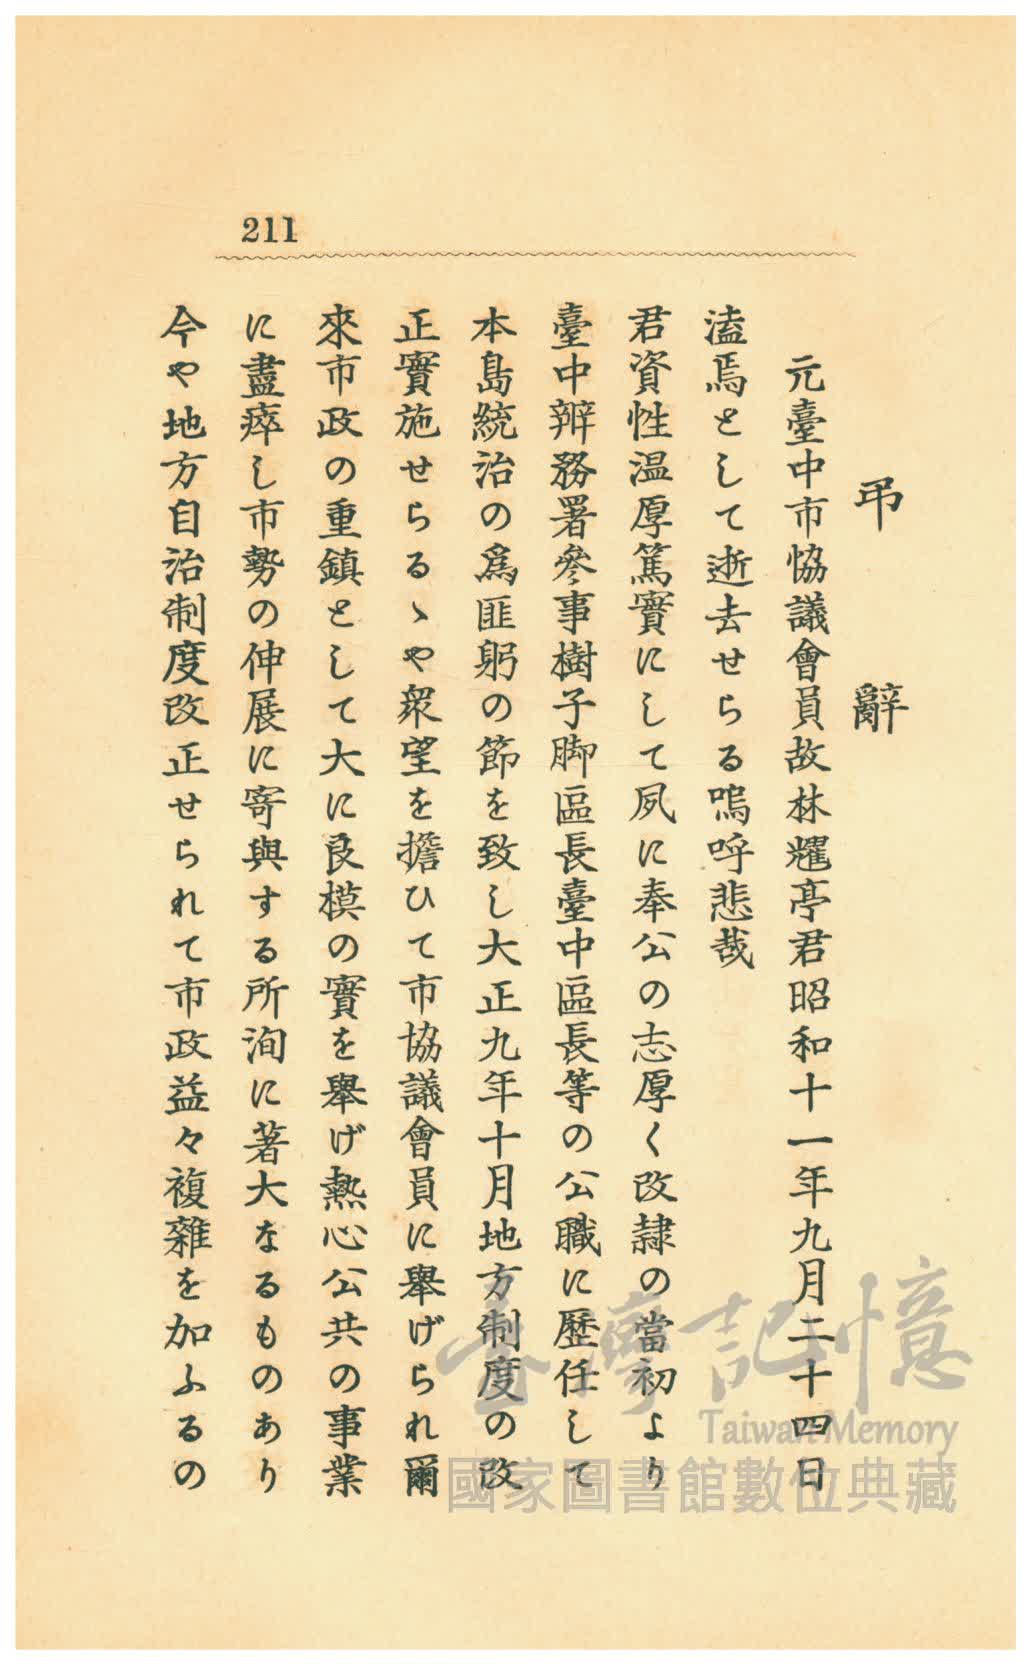 211
弔辭
元臺中市協議會員故林耀亭君昭和十一年九月二十四日
溘焉として逝去せらる嗚呼悲哉
君資性温厚篤實にして夙に奉公の志厚く改隷の當初より
臺中辨務署參事樹子脚區長臺中區長等の公職に歷任して
本島統治の爲匪躬の節を致し大正九年十月地方制度の改
正實施せらるゝや衆望を擔ひて市協議會員に擧げられ爾
來市政の重鎭として大に良模の實を擧げ熱心公共の事業
に盡瘁し市勢の伸展に寄與する所洵に著大なるものあり
今や地方自治制度改正せられて市政益々複雜を加ふるの
臺灣記憶
Taiwan Memory
國家圖書館數位典藏